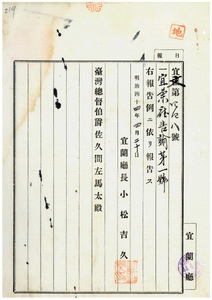 地
報日
宜庶第 八號
一宜蘭廳告諭第一號
右報告例ニ依リ報告ス
明治四十四年四月 十日
宜蘭廳長 小松吉久
臺灣總督伯爵佐久間左馬太殿
宜蘭廳